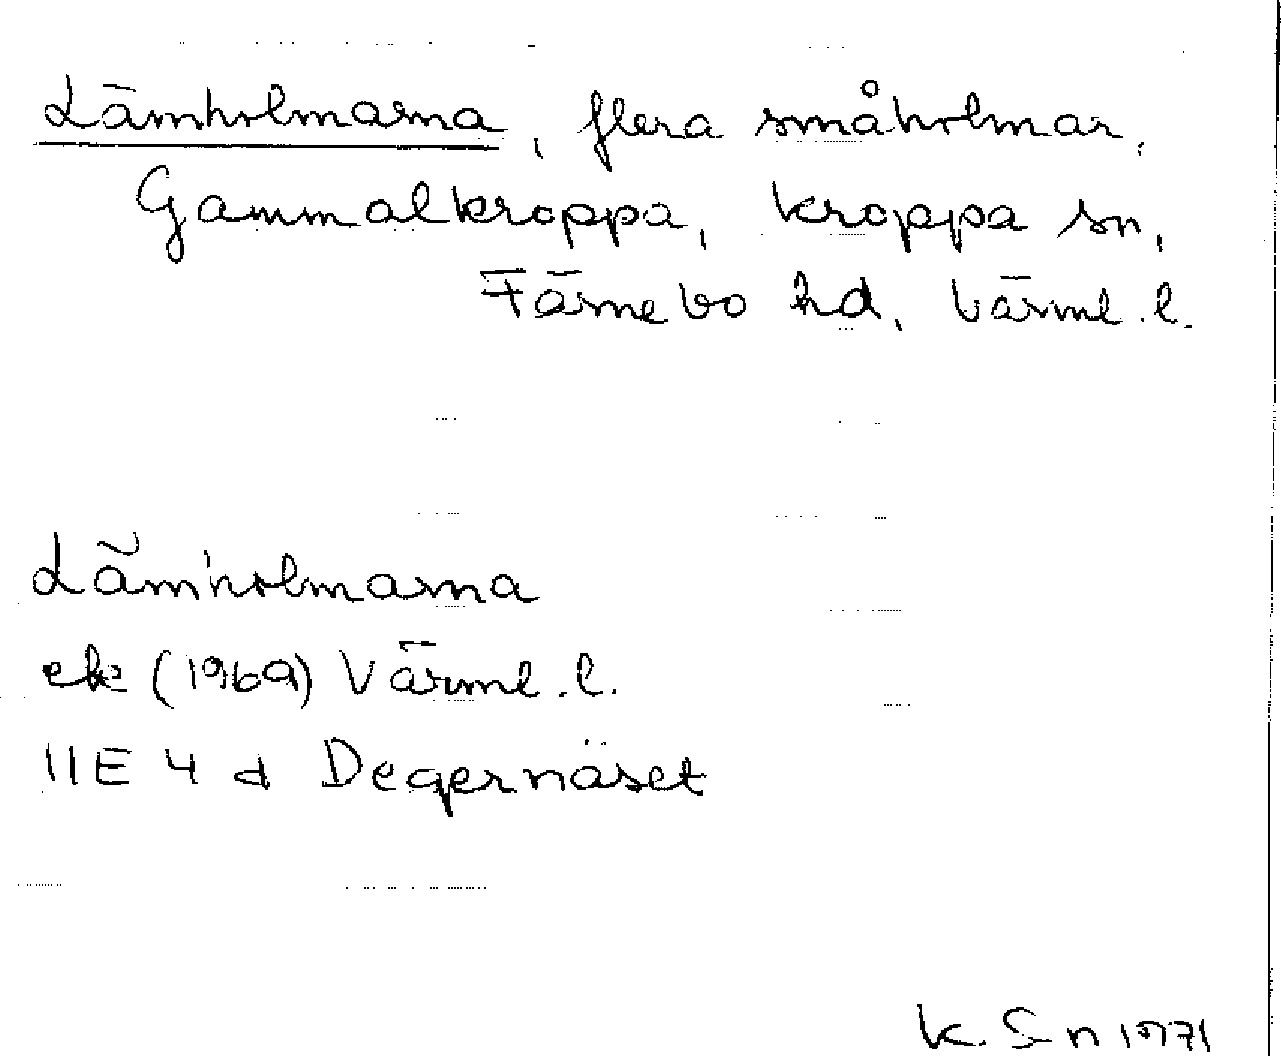 Lämholmarna, flera småholmar,
Gammalkroppa, Kroppa sn,
Färnebo hd, Värml. l.
Läm'holmarna
ek (1969) Värml. l.
11E 4 d Degernäset
K. S-n 1971